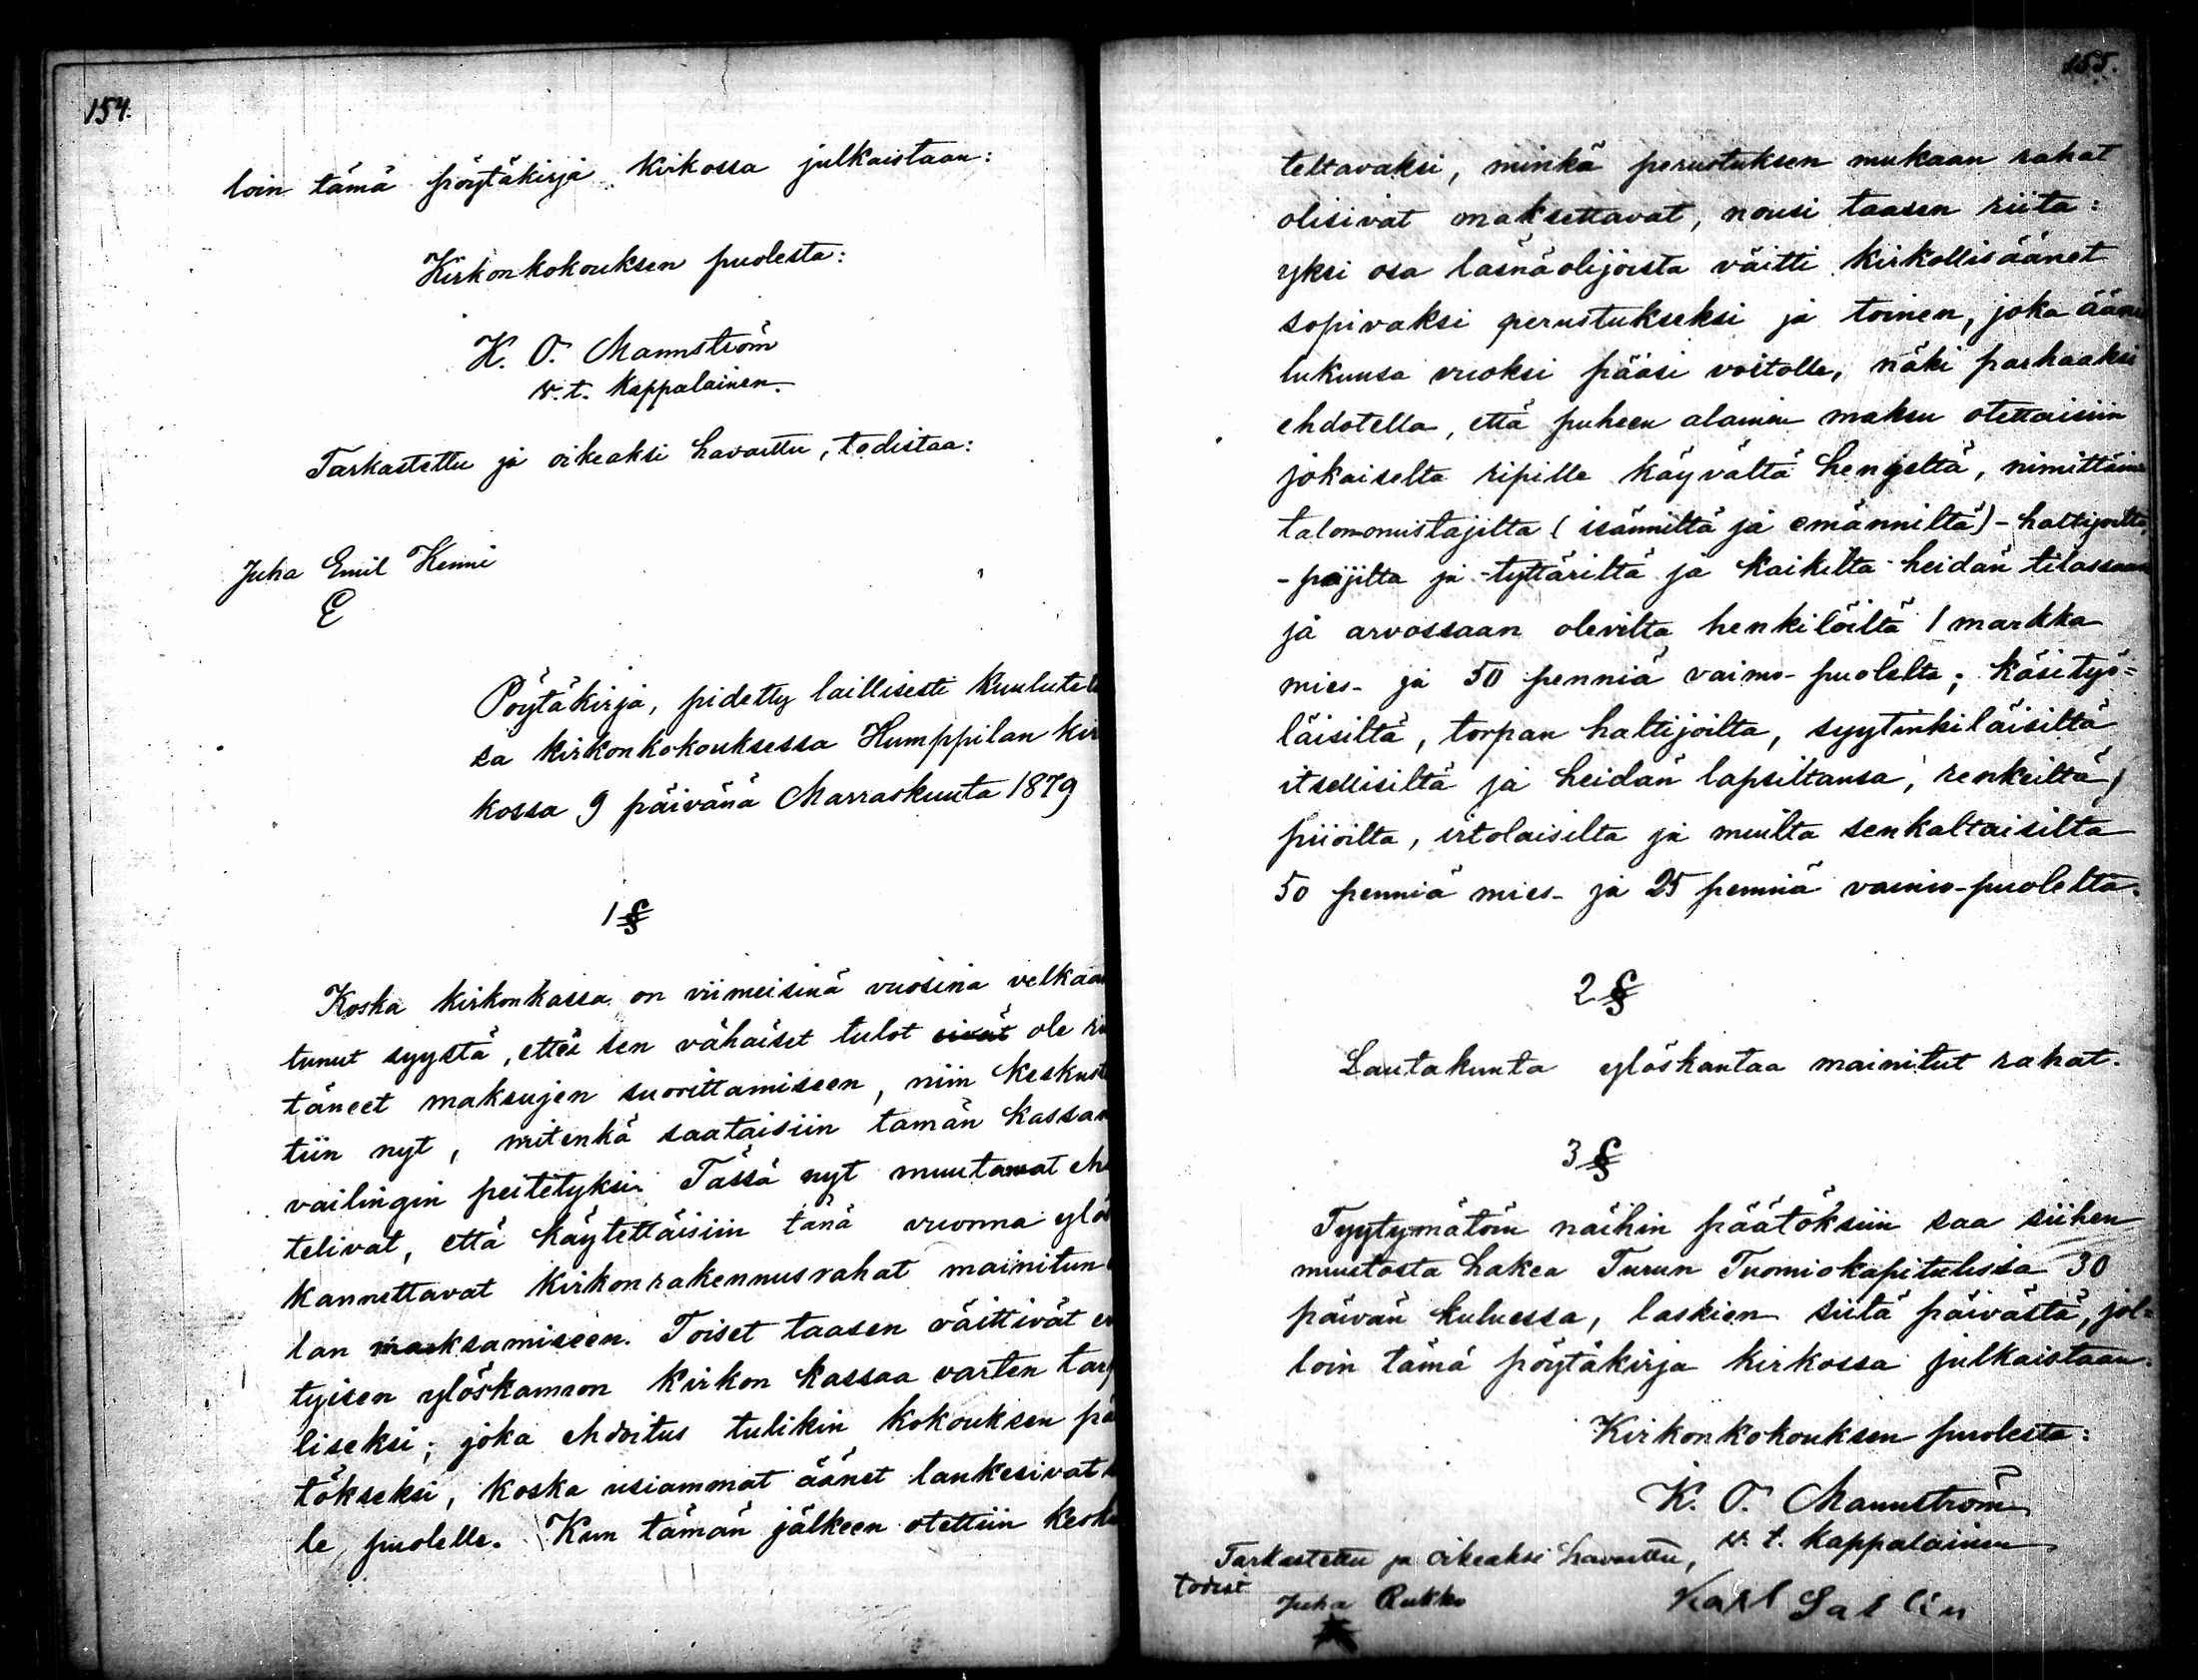 154.
loin tämä pöytäkirja kirkossa julkaistaan:
Kirkonkokouksen puolesta:
K. O. Mannström
v. t. Kappalainen.
Tarkastettu ja oikeaksi havaittu, todistaa:
Juha Emil Kenni
E
Pöytäkirja, pidetty laillisesti kuulutet
sa kirkonkokouksessa Humppilan kir
kossa 9 päivänä Marraskuuta 1879
1 §
Koska kirkonkassa on viimeisinä vuosina velkaan
tunut syystä, että sen vähäiset tulot eivät ole rii
täneet maksujen suorittamiseen, niin keskust
tiin nyt, mitenkä saataisiin tämän kassan
vailingin peitetyksi. Tässä nyt muutamat eh
telivat, että käytettäisiin tänä vuonna ylös
kannettavat kirkonrakennusrahat mainitun
lan maksamiseen. Toiset taasen väittivät er
tyisen ylöskannon kirkon kassaa varten tarp
liseksi; joka ehdoitus tulikin kokouksen pä
tökseksi, koska usiammat äänet lankesivat
le puolelle. Kun tämän jälkeen otettiin kesku
155.
teltavaksi, minkä perustuksen mukaan rahat
olisivat maksettavat, nousi taasen riita:
yksi osa läsnäolijoista väitti kirkollisäänet
sopivaksi perustukseksi ja toinen, joka ääni
lukunsa vuoksi pääsi voitolle, näki parhaaksi
ehdotella, että puheen alainen maksu otettaisiin
jokaiselta ripille käyvältä hengeltä, nimittäin
talonomistajilta (isänniltä ja emänniltä) - haltijoilta,
- pojilta ja -tyttäriltä ja kaikilta heidän tilassaan
ja arvossaan olevilta henkilöiltä 1 markka
mies- ja 50 penniä vaimo-puolelta; käsityö=
läisiltä, torpan haltijoilta, syytinkiläisiltä
itsellisiltä ja heidän lapsiltansa, renkeiltä,
piioilta, irtolaisilta ja muilta senkaltaisilta
50 penniä mies- ja 25 penniä vaimo-puolelta.
2 §
Lautakunta ylöskantaa mainitut rahat.
3 §
Tyytymätöin näihin päätöksiin saa siihen
muutosta hakea Turun Tuomiokapitulissa 30
päivän kuluessa, laskien siitä päivästä, jol=
loin tämä pöytäkirja kirkossa julkaistaan.
Kirkonkokouksen puolesta:
K. O. Mannström
v. t. kappalainen
Tarkastettu ja oikeaksi havaittu,
todist
Juha Rukko
Karl Sallin